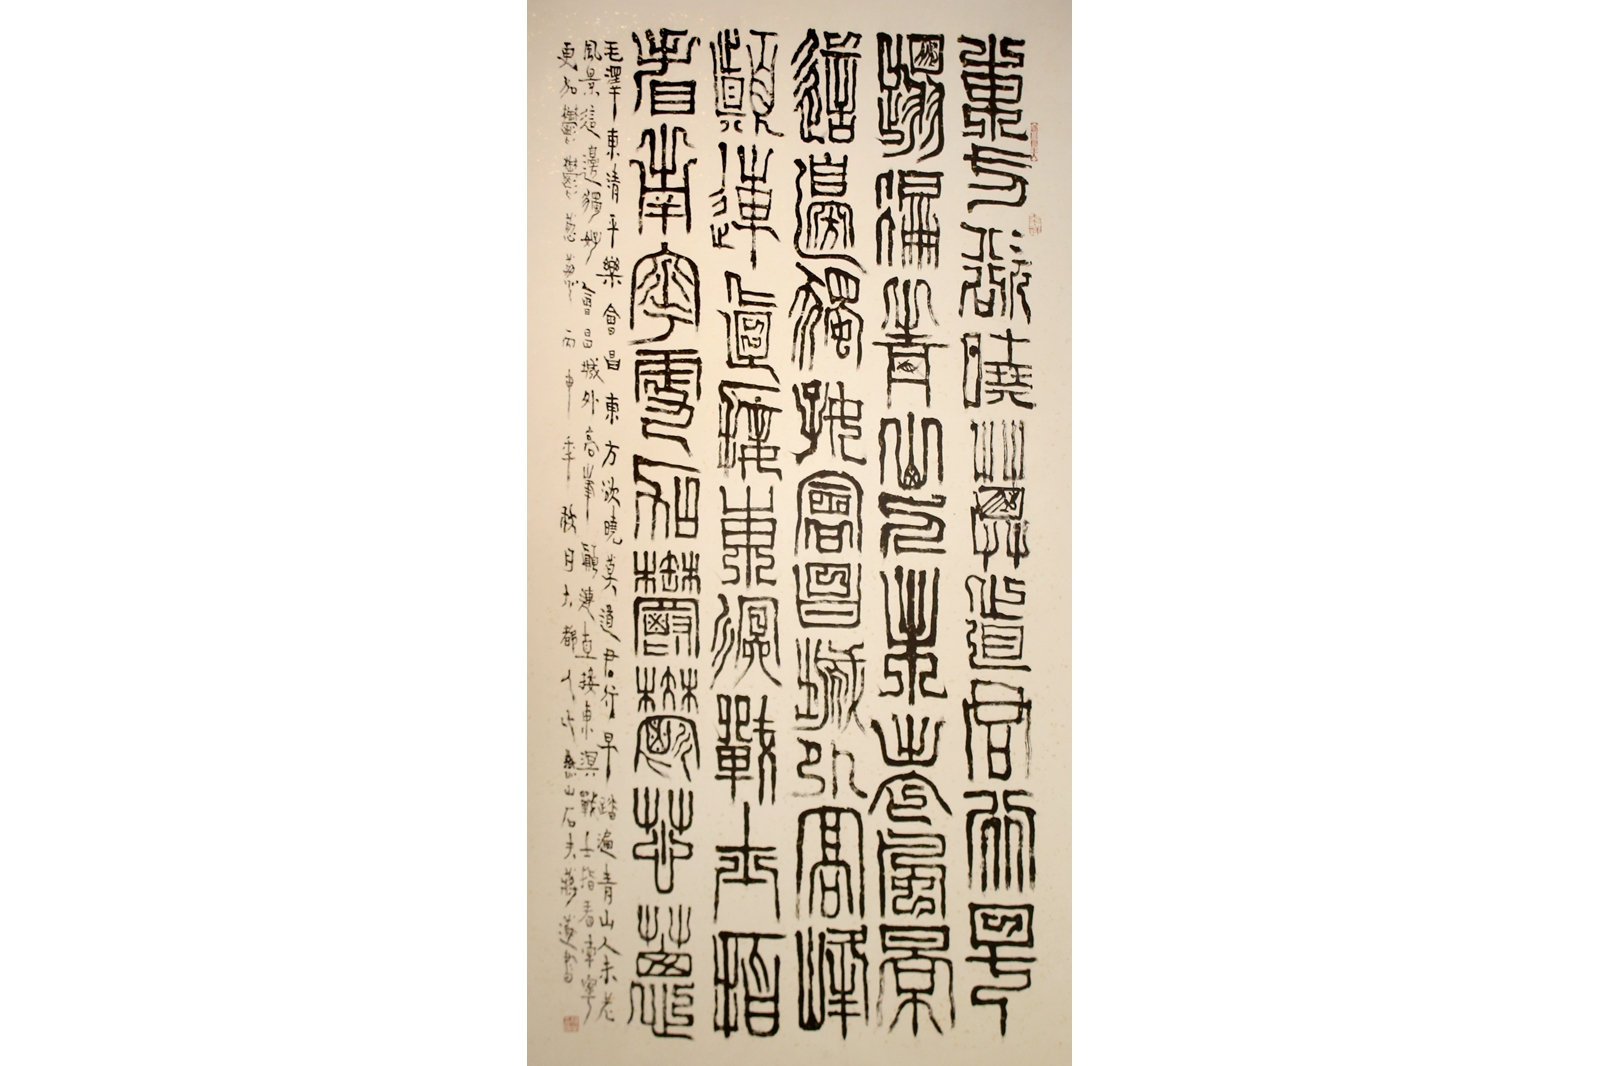 東方欲曉莫道君行早
踏遍青山人未老風景
這邊獨好會昌城外高峰
顛連直接東溟戰士指
看南粵更加鬱鬱蔥蔥
毛澤東清平樂會昌東方欲曉莫道君行早踏遍青山人未老
風景這邊獨好會昌城外高峯顛連直接東溟戰士指看南粵
更加鬱鬱蔥蔥丙申年秋日大都人氏 山石夫蔣蓮書